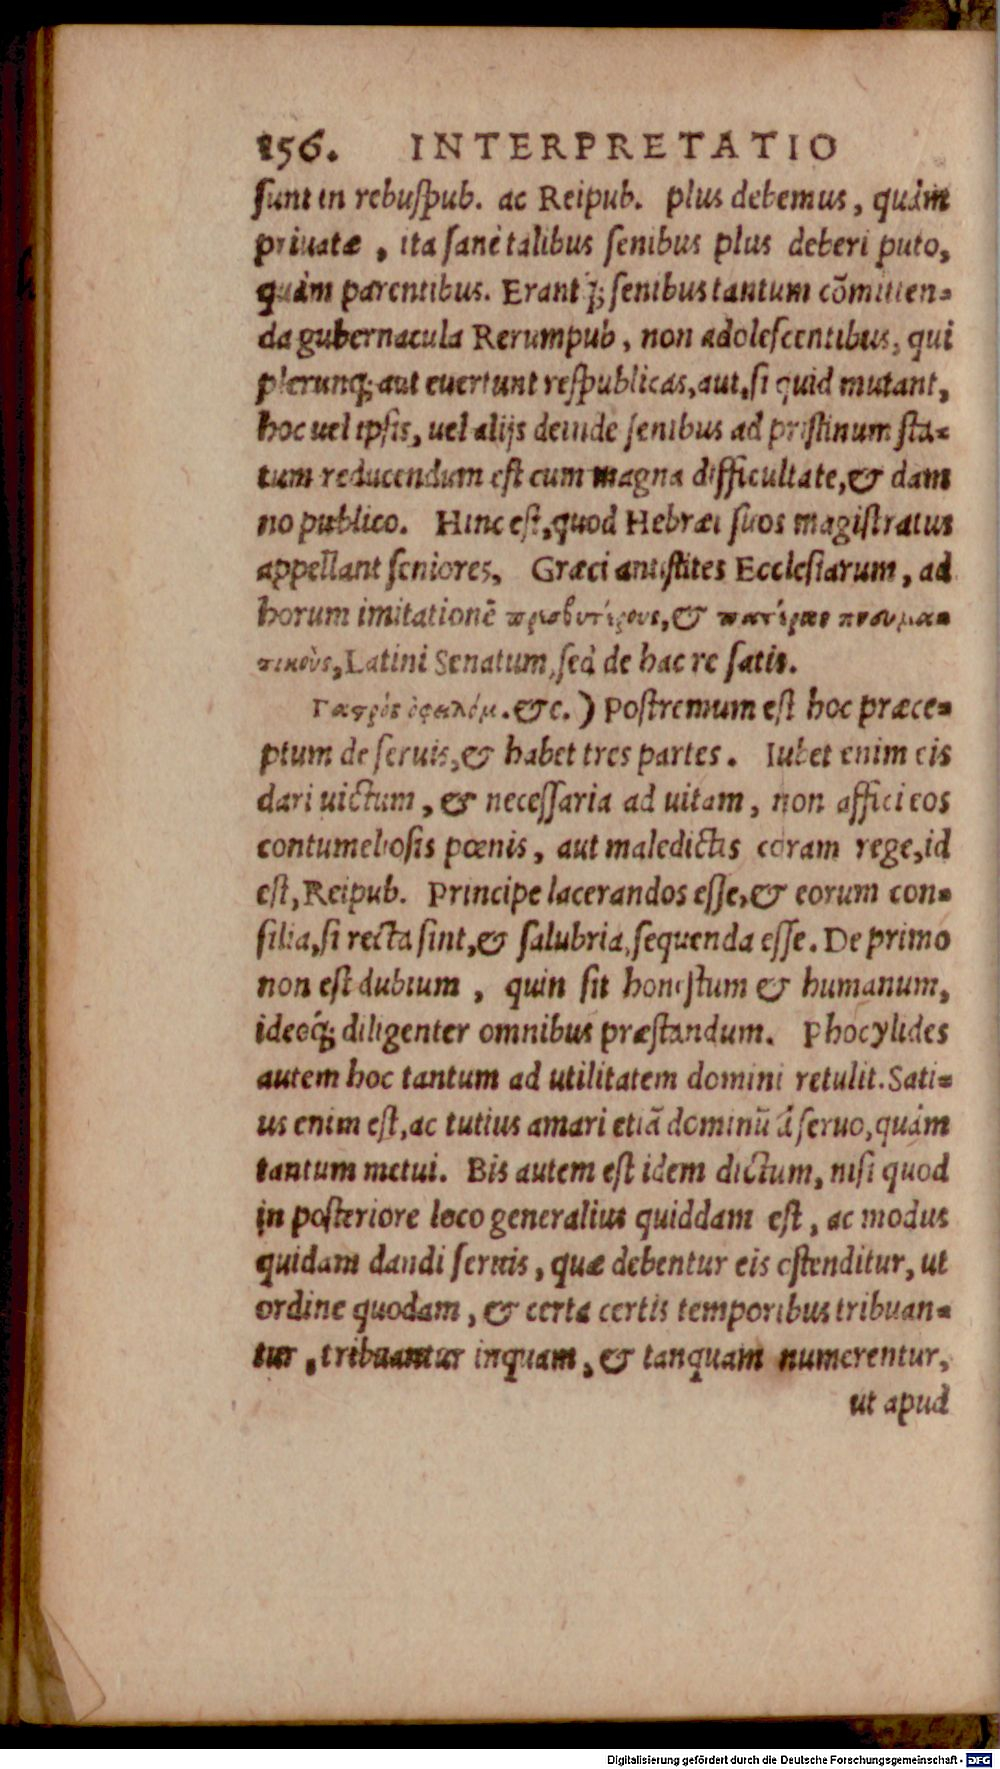 156. INTERPRETATIO
sunt in rebuspub. ac Reipub. plus debemus, quàm
priuatæ, ita sanè talibus senibus plus deberi puto,
quàm parentibus. Erantq́; senibus tantum cōmitten-
da gubernacula Rerumpub, non adolescentibus, qui
plerunq; aut euertunt respublicas, aut, si quid mutant,
hoc uel ipsis, uel alijs deinde senibus ad pristinum sta-
tum reducendum est cum magna difficultate, & dam
no publico. Hinc est, quod Hebræi suos magistratus
appellant seniores, Græci antistites Ecclesiarum, ad
horum imitationē πρεσβυτέρους, & πατέρας πνευμα
τικοὺς, Latini Senatum, sed de hac re satis.
Γαστρὸς ὀφειλόμ. &c.) Postremum est hoc præce-
ptum de seruis, & habet tres partes. Iubet enim eis
dari uictum, & necessaria ad uitam, non affici eos
contumeliosis pœnis, aut maledictis coram rege, id
est, Reipub. Principe lacerandos esse, & eorum con-
silia, si recta sint, & salubria, sequenda esse. De primo
non est dubium, quin sit honestum & humanum,
ideoq́; diligenter omnibus præstandum. Phocylides
autem hoc tantum ad utilitatem domini retulit. Sati-
us enim est, ac tutius amari etiā dominū à seruo, quàm
tantum metui. Bis autem est idem dictum, nisi quod
in posteriore loco generalius quiddam est, ac modus
quidam dandi seruis, quæ debentur eis ostenditur, ut
ordine quodam, & certa certis temporibus tribuan-
tur, tribuantur inquam, & tanquam numerentur,
ut apud
Digitalisierung gefördert durch die Deutsche Forschungsgemeinschaft - DFG